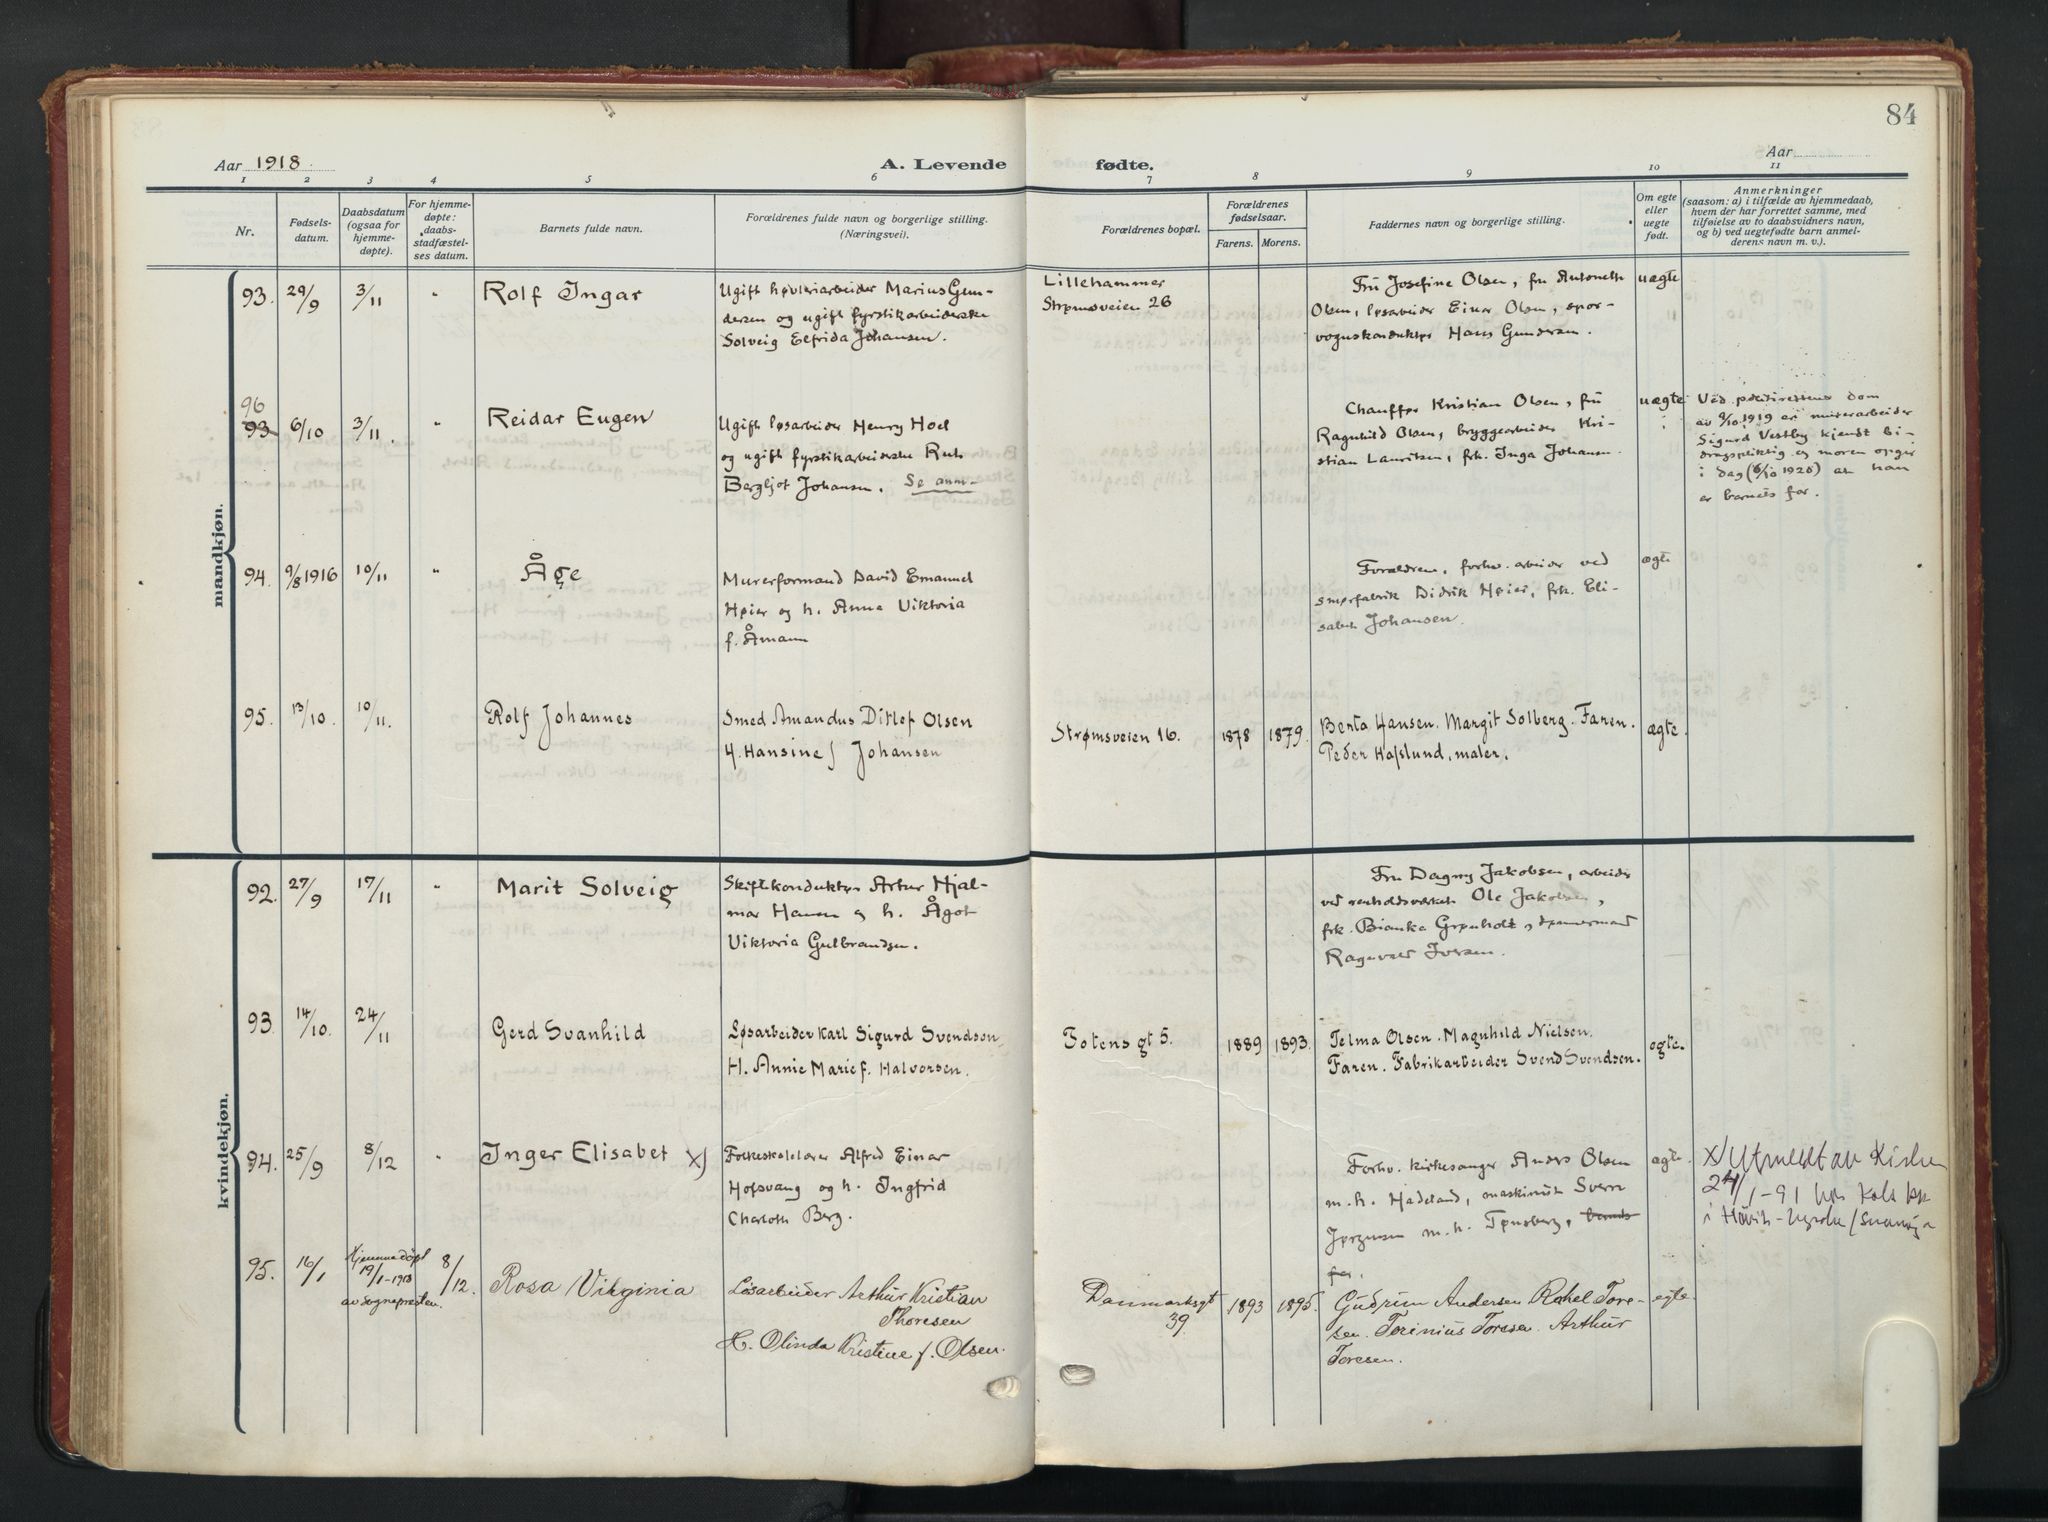 84
Aar 1918.
A. Levende fødte.
Aar
1 2 3 4 5 6 7 8 9 10 11
Nr.
Fødsels-
datum.
Daabsdatum
(ogsaa for
hjemme-
døpte).
For hjemme-
døpte:
daabs-
stadfæstel-
ses datum.
Barnets fulde navn.
Forældrenes fulde navn og borgerlige stilling.
(Næringsvei).
Forældrenes bopæl.
Forældrenes
fødselsaar.
Farens. Morens.
Faddernes navn og borgerlige stilling.
Om egte
eller
uegte
født.
Anmerkninger
(saasom: a) i tilfælde av hjemmedaab,
hvem der har forrettet samme, med
tilføielse av to daabsvidners navn,
og b) ved uegtefødte barn anmel-
derens navn m. v.).
mandkjøn.
93. 29/9 3/11 " Rolf Ingar
Ugift høvleriarbeider Marius Gun-
dersen og ugift fyrstikarbeiderske
Solveig Elfrida Johansen.
Lillehammer
Strømsveien 26
Fru Josefine Olsen, fru Antonette
Olsen, løsarbeider Einar Olsen, spor-
vognskonduktør Hans Gundersen.
uægte
96
93 6/10 3/11. " Reidar Eugen
Ugift løsarbeider Henry Hoel
og ugift fyrstikarbeiderske Ruth
Bergljot Johansen. Se anm-
Chauffør Kristian Olsen, fru
Ragnhild Olsen, bryggearbeider Kri-
stian Lauritsen, frk. Inga Johansen.
uægte
Ved politirettens dom
av 9/10 1919 er murerarbeider
Sigurd Vestby kjendt bi-
dragspliktig og moren opgir
i dag (6/10 1925) at han
er barnets far.
94. 9/8 1916 10/11 " Åge
Murerformand David Emanuel
Høier og h. Anna Viktoria
f. Åmann
Forældrene, forhv. arbeider ved
smørfabrik Didrik Høier, frk. Eli-
sabeth Johansen.
ægte
95. 13/10. 10/11. Rolf Johannes
Smed Amandus Ditlef Olsen
H. Hansine f Johansen
Strømsveien 16.
1878 1879.
Berta Hansen. Margit Solberg. Faren.
Peder Hafslund, maler.
ægte.
kvindekjøn.
92. 27/9 17/11 " Marit Solveig
Skiftkonduktør Artur Hjal-
mar Hansen og h. Ågot
Viktoria Gulbrandsen.
Fru Dagny Jakobsen, arbeider
ved renholdsverket Ole Jakobsen,
frk. Bianka Grønholt,
Ragnvald Iversen.
93. 14/10. 24/11 Gerd Svanhild
Løsarbeider Karl Sigurd Svendsen,
H. Annie Marie f. Halvorsen.
Totens gt 5.
1889 1893.
Telma Olsen. Magnhild Nielsen.
Faren. Fabrikarbeider Svend Svendsen.
egte.
94. 25/9 8/12 " Inger Elisabet x)
Folkeskolelærer Alfred Einar
Hofsvang og h. Ingfrid
Charlotte Berg.
Forhv. kirkesanger Anders Olsen
m. h. Hadeland, maskinist Sverre
Jørgensen m. h. Tønsberg,
ægte.
x) Utmeldt av Kirken
24/1-91
i Høvik-
95. 16/1 Hjemmedøpt
19/1-1918
av sognepresten. 8/12. Rosa Virginia
Løsarbeider Arthur Kristian
Thoresen
H. Olinda Kristine f. Olsen.
Danmarksgt
39.
1893 1895.
Gudrun Andersen Rakel Tore-
sen. Torinius Toresen. Arthur
Toresen.
egte.